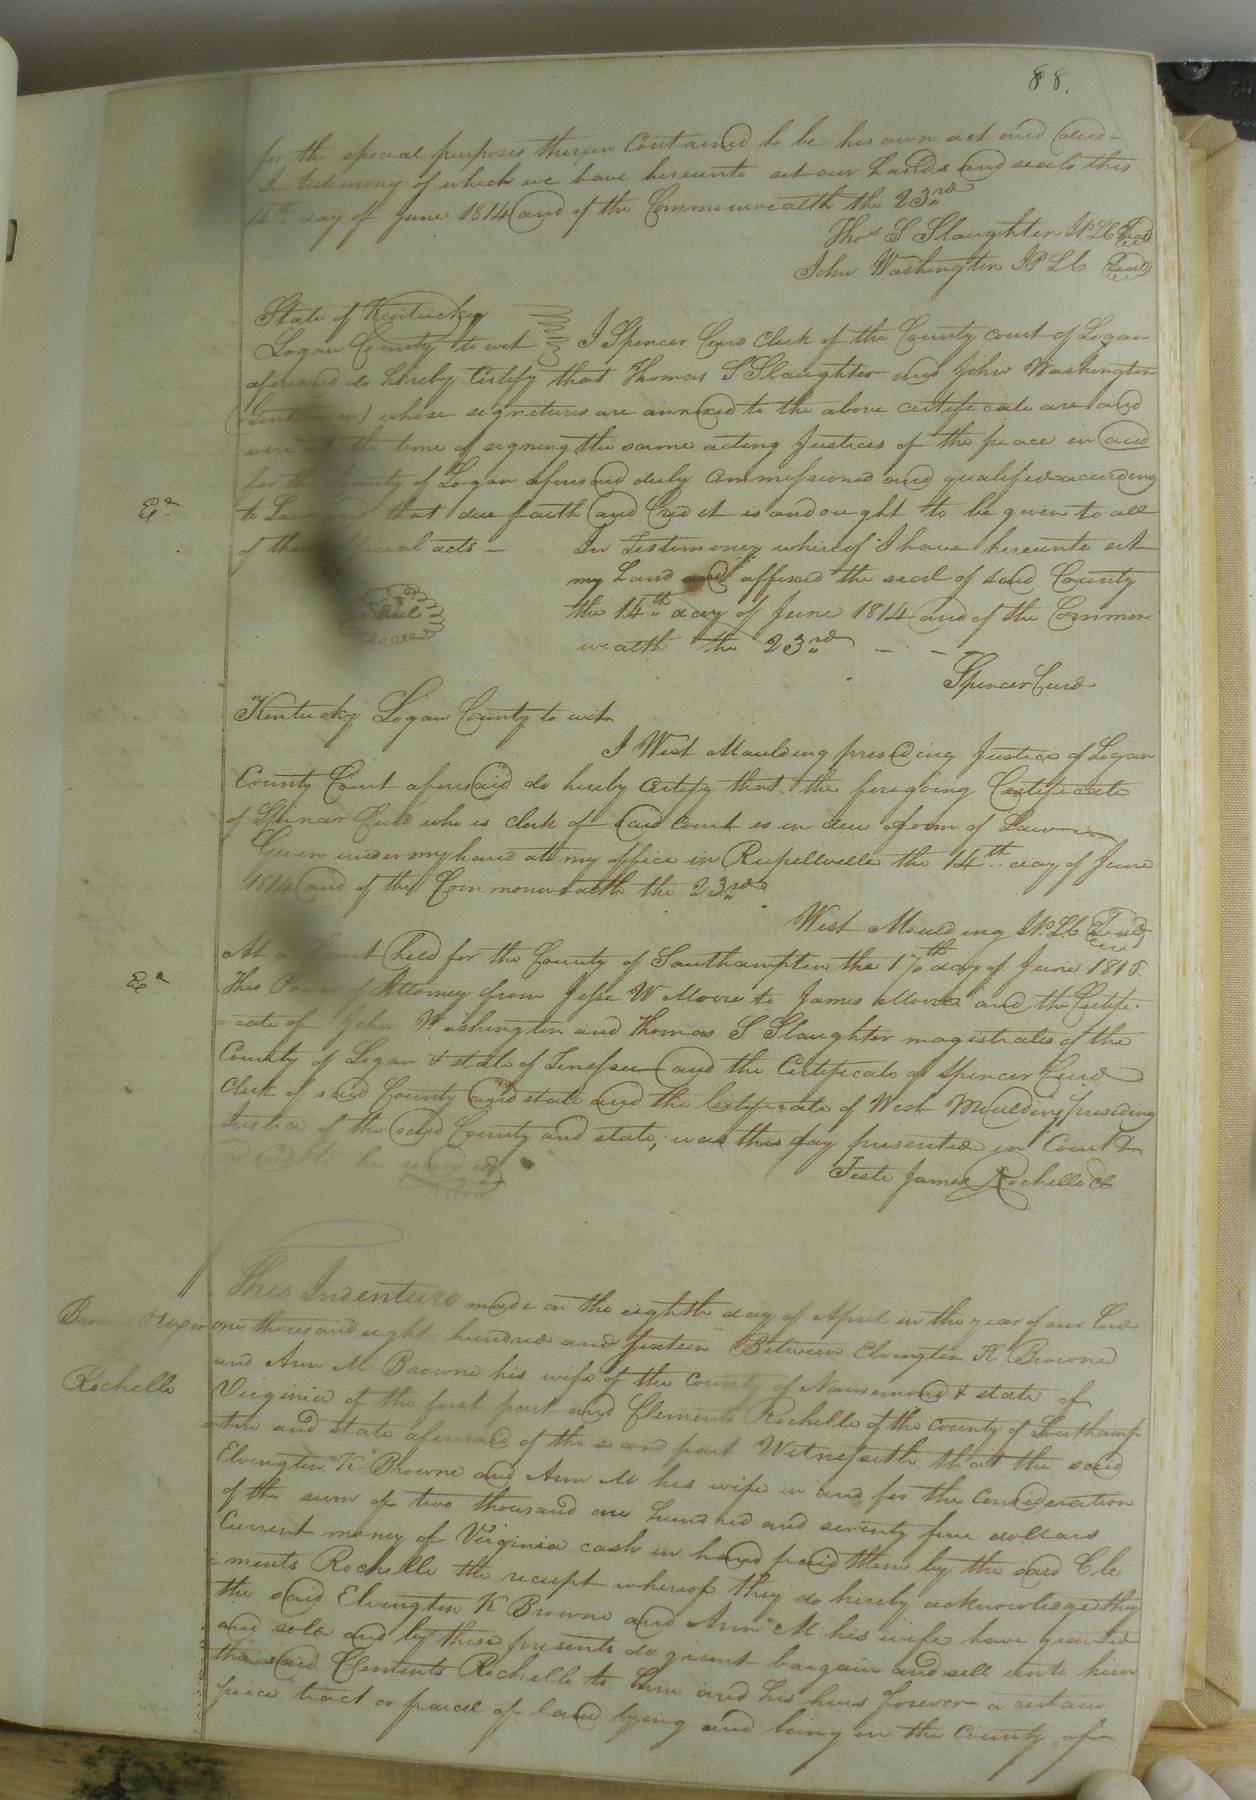 88.
for the special purposes therein Contained to be his own act and deed-
In testimony of which we have hereunto set our hands and seals this
14th day of June 1814 and of the Commonwealth the 23rd
Thos S Slaughter JPLC Seal
John Washington JPLC Seal
State of Kentucky
Logan County to wit I Spencer Curd Clerk of the County court of Logan
aforesaid do hereby Certify that Thomas S Slaughter and John Washington
(Gentlemen) whose signitures are annexed to the above certificate are and
were at the time of signing the same acting Justices of the peace in and
for the County of Logan aforesaid duly Commissioned and qualified according
to Law and that due faith and Credit is and ought to be given to all
of their official acts - In Testimony whereof I have hereunto set
my hand and affixed the seal of said County
Seal the 14th day of June 1814 and of the Common
wealth the 23rd - -
Spencer Curd
Kentucky Logan County to wit
I West Maulding presiding Justice of Logan
County Court aforesaid do hereby Certify that the foregoing Certificate
of Spincer Curd who is clerk of said Court is in due form of Law
Given under my hand at my office in Russellville the 14th day of June
1814 and of the Commonwealth the 23rd
West Maulding JPLC Seal
Exd
At a Court held for the County of Southampton the 17th day of June 1816
This Power of Attorney from Jesse W Moore to James Moore and the Certifi-
=cate of John Washington and Thomas S Slaughter magistrates of the
County of Logan & state of Tenessee and the Certificate of Spencer Curd
Clerk of said County and state and the Certificate of West Maulding presiding
Justice of the said County and state, was this day presented in Court &
Ordered to be recorded
Teste James Rochelle CC
This Indenture made on the eighth day of April in the year of our Lord
Browne & uxor one thousand eight hundred and sixteen Between Elvington K Browne
and Ann M Browne his wife of the County of Nansemond & state of
Rochelle Virginia of the first part and Clements Rochelle of the County of Southamp
=ton and state aforesaid of the second part Witnesseth that the said
Elvington K Browne and Ann M his wife in and for the Consideration
of the sum of two thousand one hundred and seventy five dollars
Current money of Virginia cash in hand paid them by the said Cle
=ments Rochelle the receipt whereof they do hereby acknowledge they
the said Elvington K Browne and Ann M his wife have granted
and sold and by these presents do grant bargain and sell unto him
the said Clements Rochelle to him and his heirs forever a certain
piece tract or parcel of land lying and being in the County of